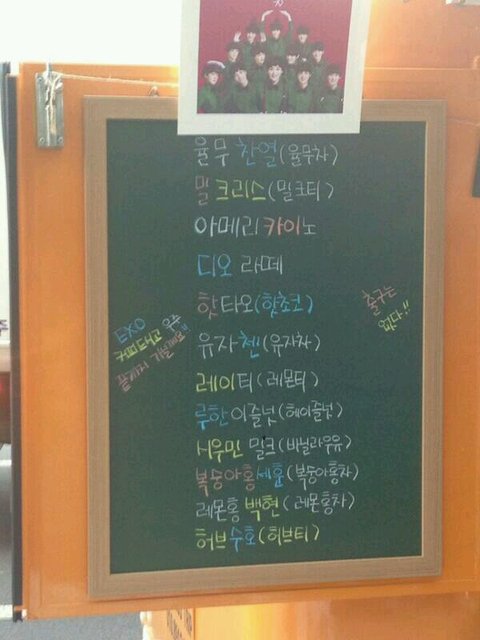 율무 찬열(율무차)
밀 크리스(밀크티)
아메리카이노
디오 라떼
핫타오(핫초코)
유자첸(유자차)
레이티(레몬티)
루한이즐넛(헤이즐넛)
시우민 밀크(바닐라우유)
복숭아홍세훈(복숭아홍차)
레몬홍 백현(레몬홍차)
허브수호(허브티)
EXO
출구는
없다!!